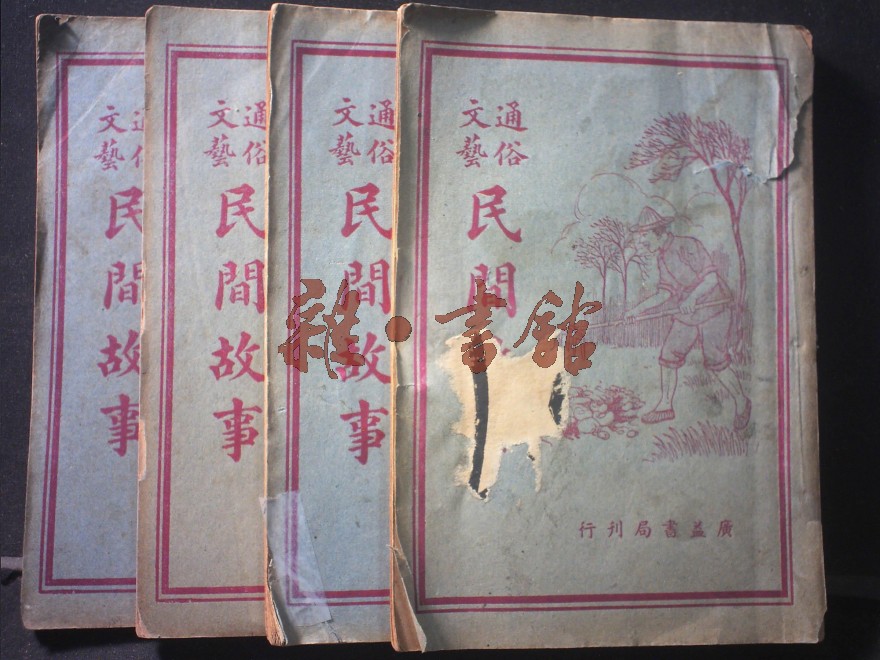 通俗
文藝
民間故事
通俗
文藝
民間故事
通俗
文藝
民間故事
通俗
文藝
民間
廣益書局刊行
雜·書舘